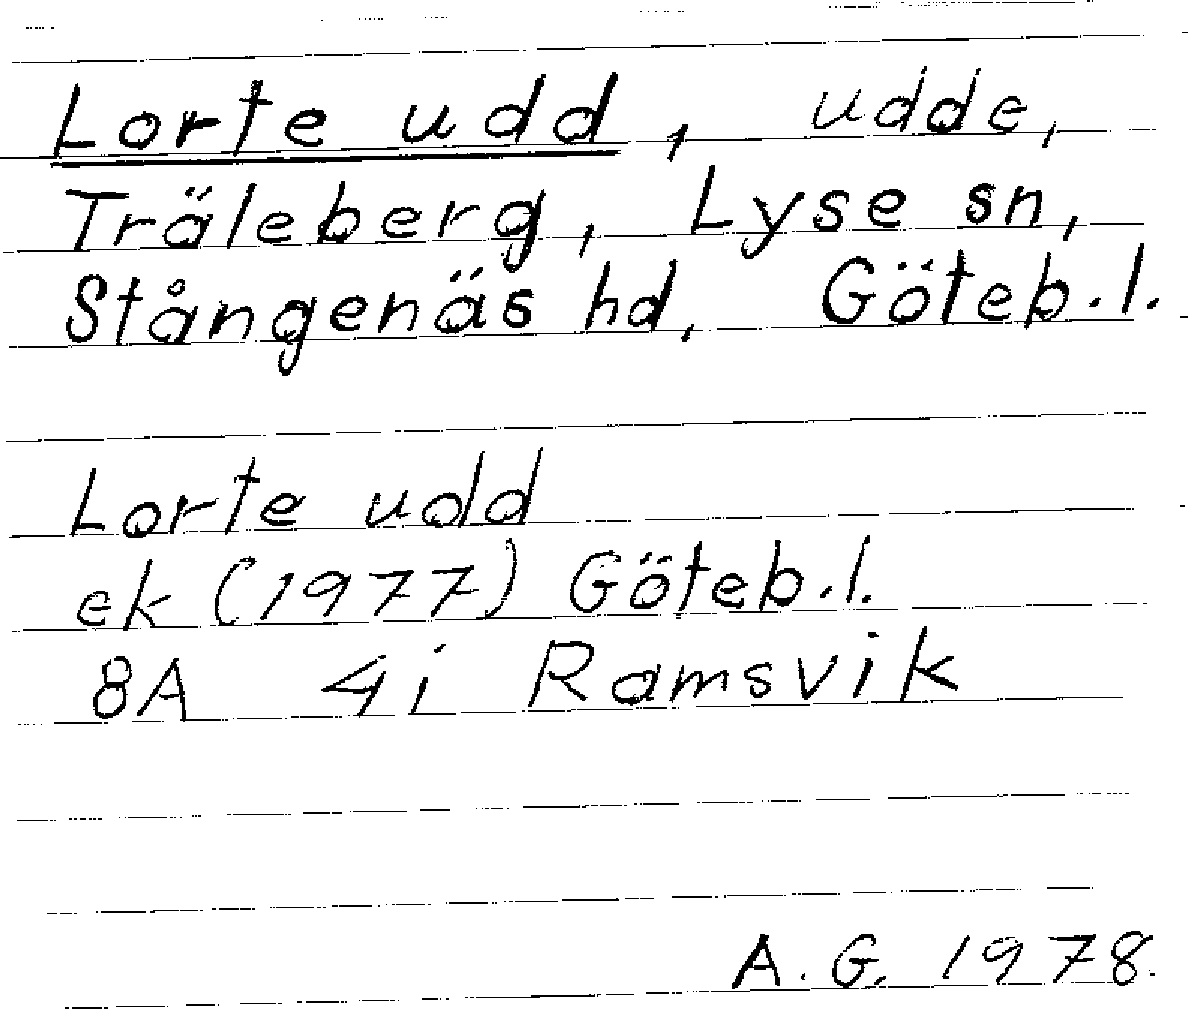 Lorte udd, udde,
Träleberg, Lyse sn,
Stångenäs hd, Göteb.l.
Lorte udd
ek (1977) Göteb.l.
8A 4i Ramsvik
A.G. 1978.